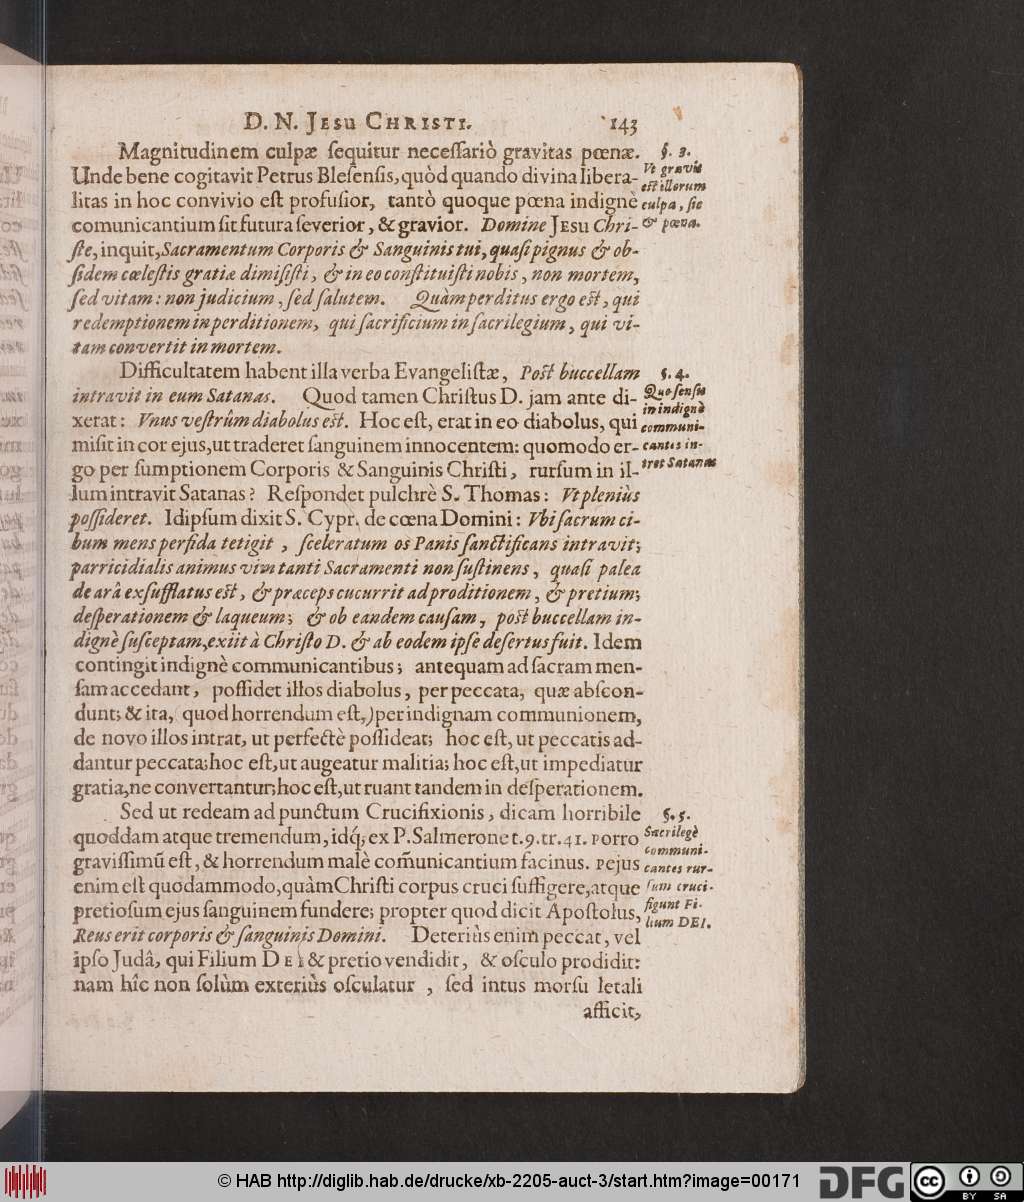 D. N. Jesu Christi. 143
Magnitudinem culpæ ſequitur neceſſariò gravitas pœnæ.
Unde bene cogitavit Petrus Bleſenſis, quòd quando divina libera-
litas in hoc convivio eſt profuſior, tantò quoque pœna indignè
comunicantium ſit futura ſeverior, & gravior. Domine Jesu Chri-
ſte, inquit, Sacramentum Corporis & Sanguinis tui, quaſi pignus & ob-
ſidem cœleſtis gratiæ dimiſiſti, & in eo conſtituiſti nobis, non mortem,
ſed vitam: non judicium, ſed ſalutem. Quàm perditus ergo eſt, qui
redemptionem in perditionem, qui ſacrificium in ſacrilegium, qui vi-
tam convertit in mortem.
§. 3.
Vt gravis
eſt illorum
culpa, ſic
& pœna.
Difficultatem habent illa verba Evangeliſtæ, Poſt buccellam
intravit in eum Satanas. Quod tamen Chriſtus D. jam ante di-
xerat: Vnus veſtrûm diabolus eſt. Hoc eſt, erat in eo diabolus, qui
miſit in cor ejus, ut traderet ſanguinem innocentem: quomodo er-
go per ſumptionem Corporis & Sanguinis Chriſti, rurſum in il-
lum intravit Satanas? Reſpondet pulchrè S. Thomas: Vt pleniùs
poſſideret. Idipſum dixit S. Cypr. de cœna Domini: Vbi ſacrum ci-
bum mens perfida tetigit, ſceleratum os Panis ſanctificans intravit;
parricidialis animus vim tanti Sacramenti non ſuſtinens, quaſi palea
de arâ exſufflatus eſt, & præceps cucurrit ad proditionem, & pretium;
deſperationem & laqueum; & ob eandem cauſam, poſt buccellam in-
dignè ſuſceptam, exiit à Chriſto D. & ab eodem ipſe deſertus fuit. Idem
contingit indignè communicantibus; antequam ad ſacram men-
ſam accedant, poſſidet illos diabolus, per peccata, quæ abſcon-
dunt; & ita, quod horrendum eſt,) per indignam communionem,
de novo illos intrat, ut perfectè poſſideat; hoc eſt, ut peccatis ad-
dantur peccata; hoc eſt, ut augeatur malitia; hoc eſt, ut impediatur
gratia, ne convertantur; hoc eſt, ut ruant tandem in deſperationem.
§. 4.
Quo ſenſu
in indignè
communi-
cantes in-
tret Satanas
Sed ut redeam ad punctum Crucifixionis, dicam horribile
quoddam atque tremendum, idq́; ex P. Salmerone t. 9. tr. 41. Porro
graviſſimũ eſt, & horrendum malè com̃unicantium facinus. Pejus
enim eſt quodammodo, quàm Chriſti corpus cruci ſuffigere, atque
pretioſum ejus ſanguinem fundere; propter quod dicit Apoſtolus,
Reus erit corporis & ſanguinis Domini. Deteriùs enim peccat, vel
ipſo Judâ, qui Filium Dei & pretio vendidit, & oſculo prodidit:
nam hîc non ſolùm exteriùs oſculatur, ſed intus morſu letali
afficit,
§. 5.
Sacrilegè
communi-
cantes rur-
ſum cruci-
figunt Fi-
lium DEI.
© HAB http://diglib.hab.de/drucke/xb-2205-auct-3/start.htm?image=00171
DFG
cc BY SA